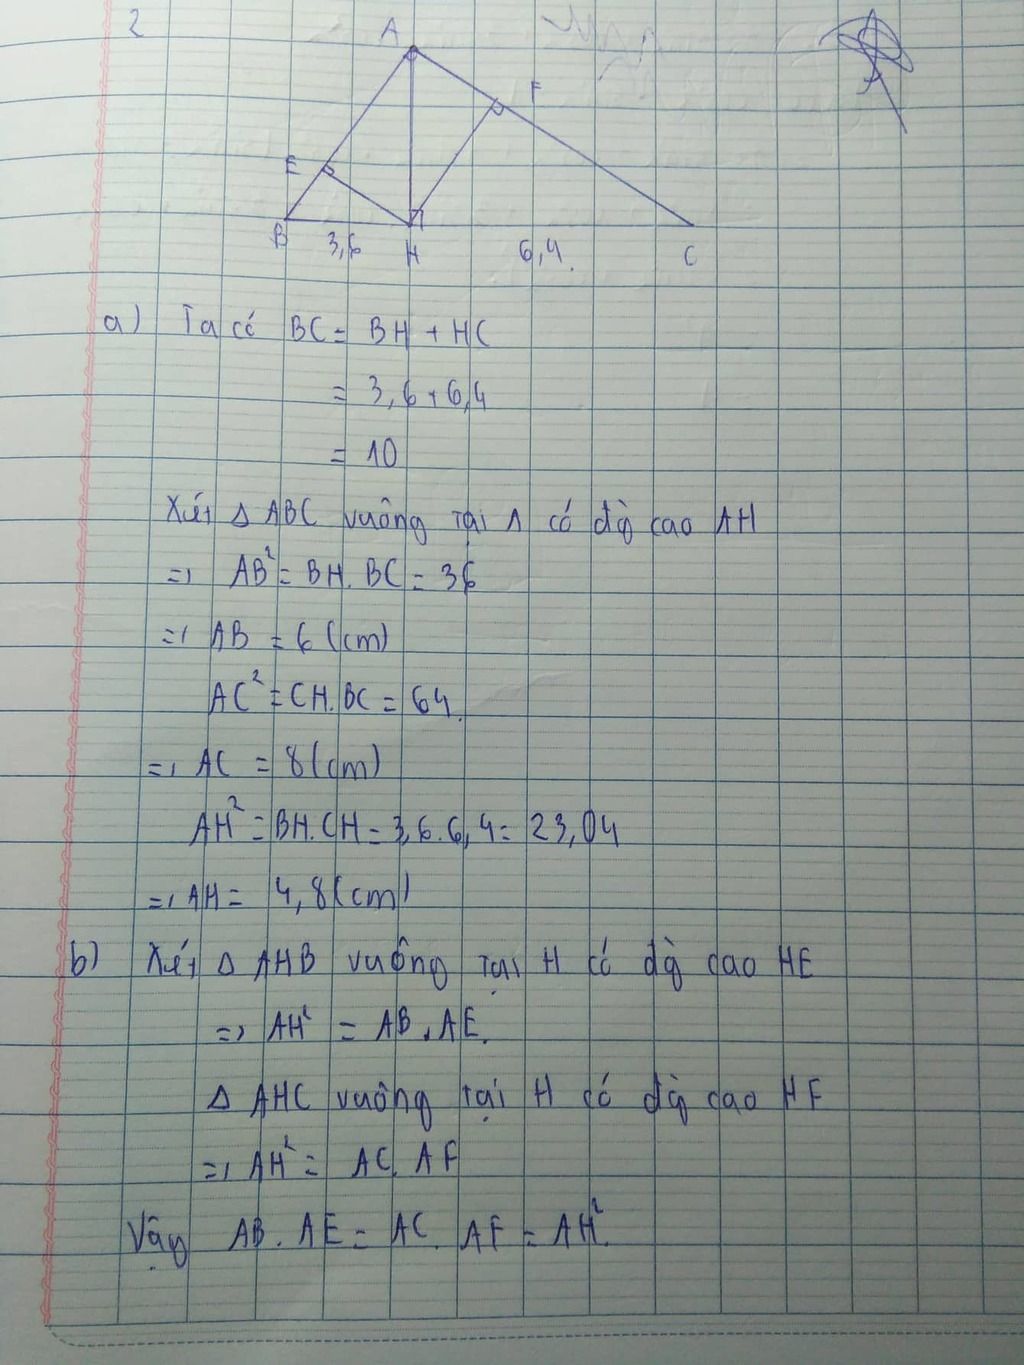 2
A
F
E
B 3,6 H 6,4 C
a) Ta có BC = BH + HC
= 3,6 + 6,4
= 10
Xét Δ ABC vuông tại A có đg cao AH
=> AB² = BH. BC = 36
=> AB = 6 (cm)
AC² = CH. BC = 64
=> AC = 8 (cm)
AH² = BH. CH = 3,6. 6,4 = 23,04
=> AH = 4,8 (cm)
b) Xét Δ AHB vuông tại H có đg cao HE
=> AH² = AB. AE.
Δ AHC vuông tại H có đg cao HF
=> AH² = AC. AF
Vậy AB. AE = AC. AF = AH².